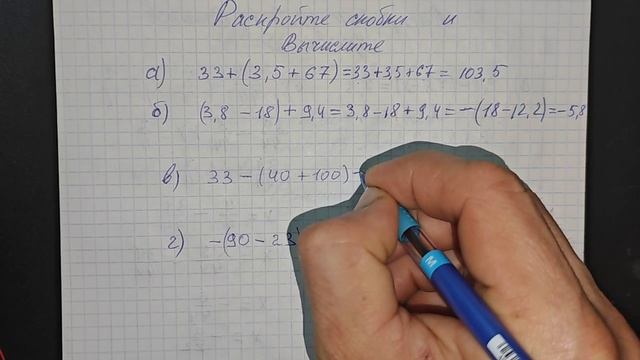 Раскройте скобки и
Вычислите
а) 33+(3,5+67)=33+3,5+67= 103,5
б) (3,8-18)+9,4=3,8-18+9,4=-(18-12,2)=-5,8
в) 33-(40+100)
г) -(90-23